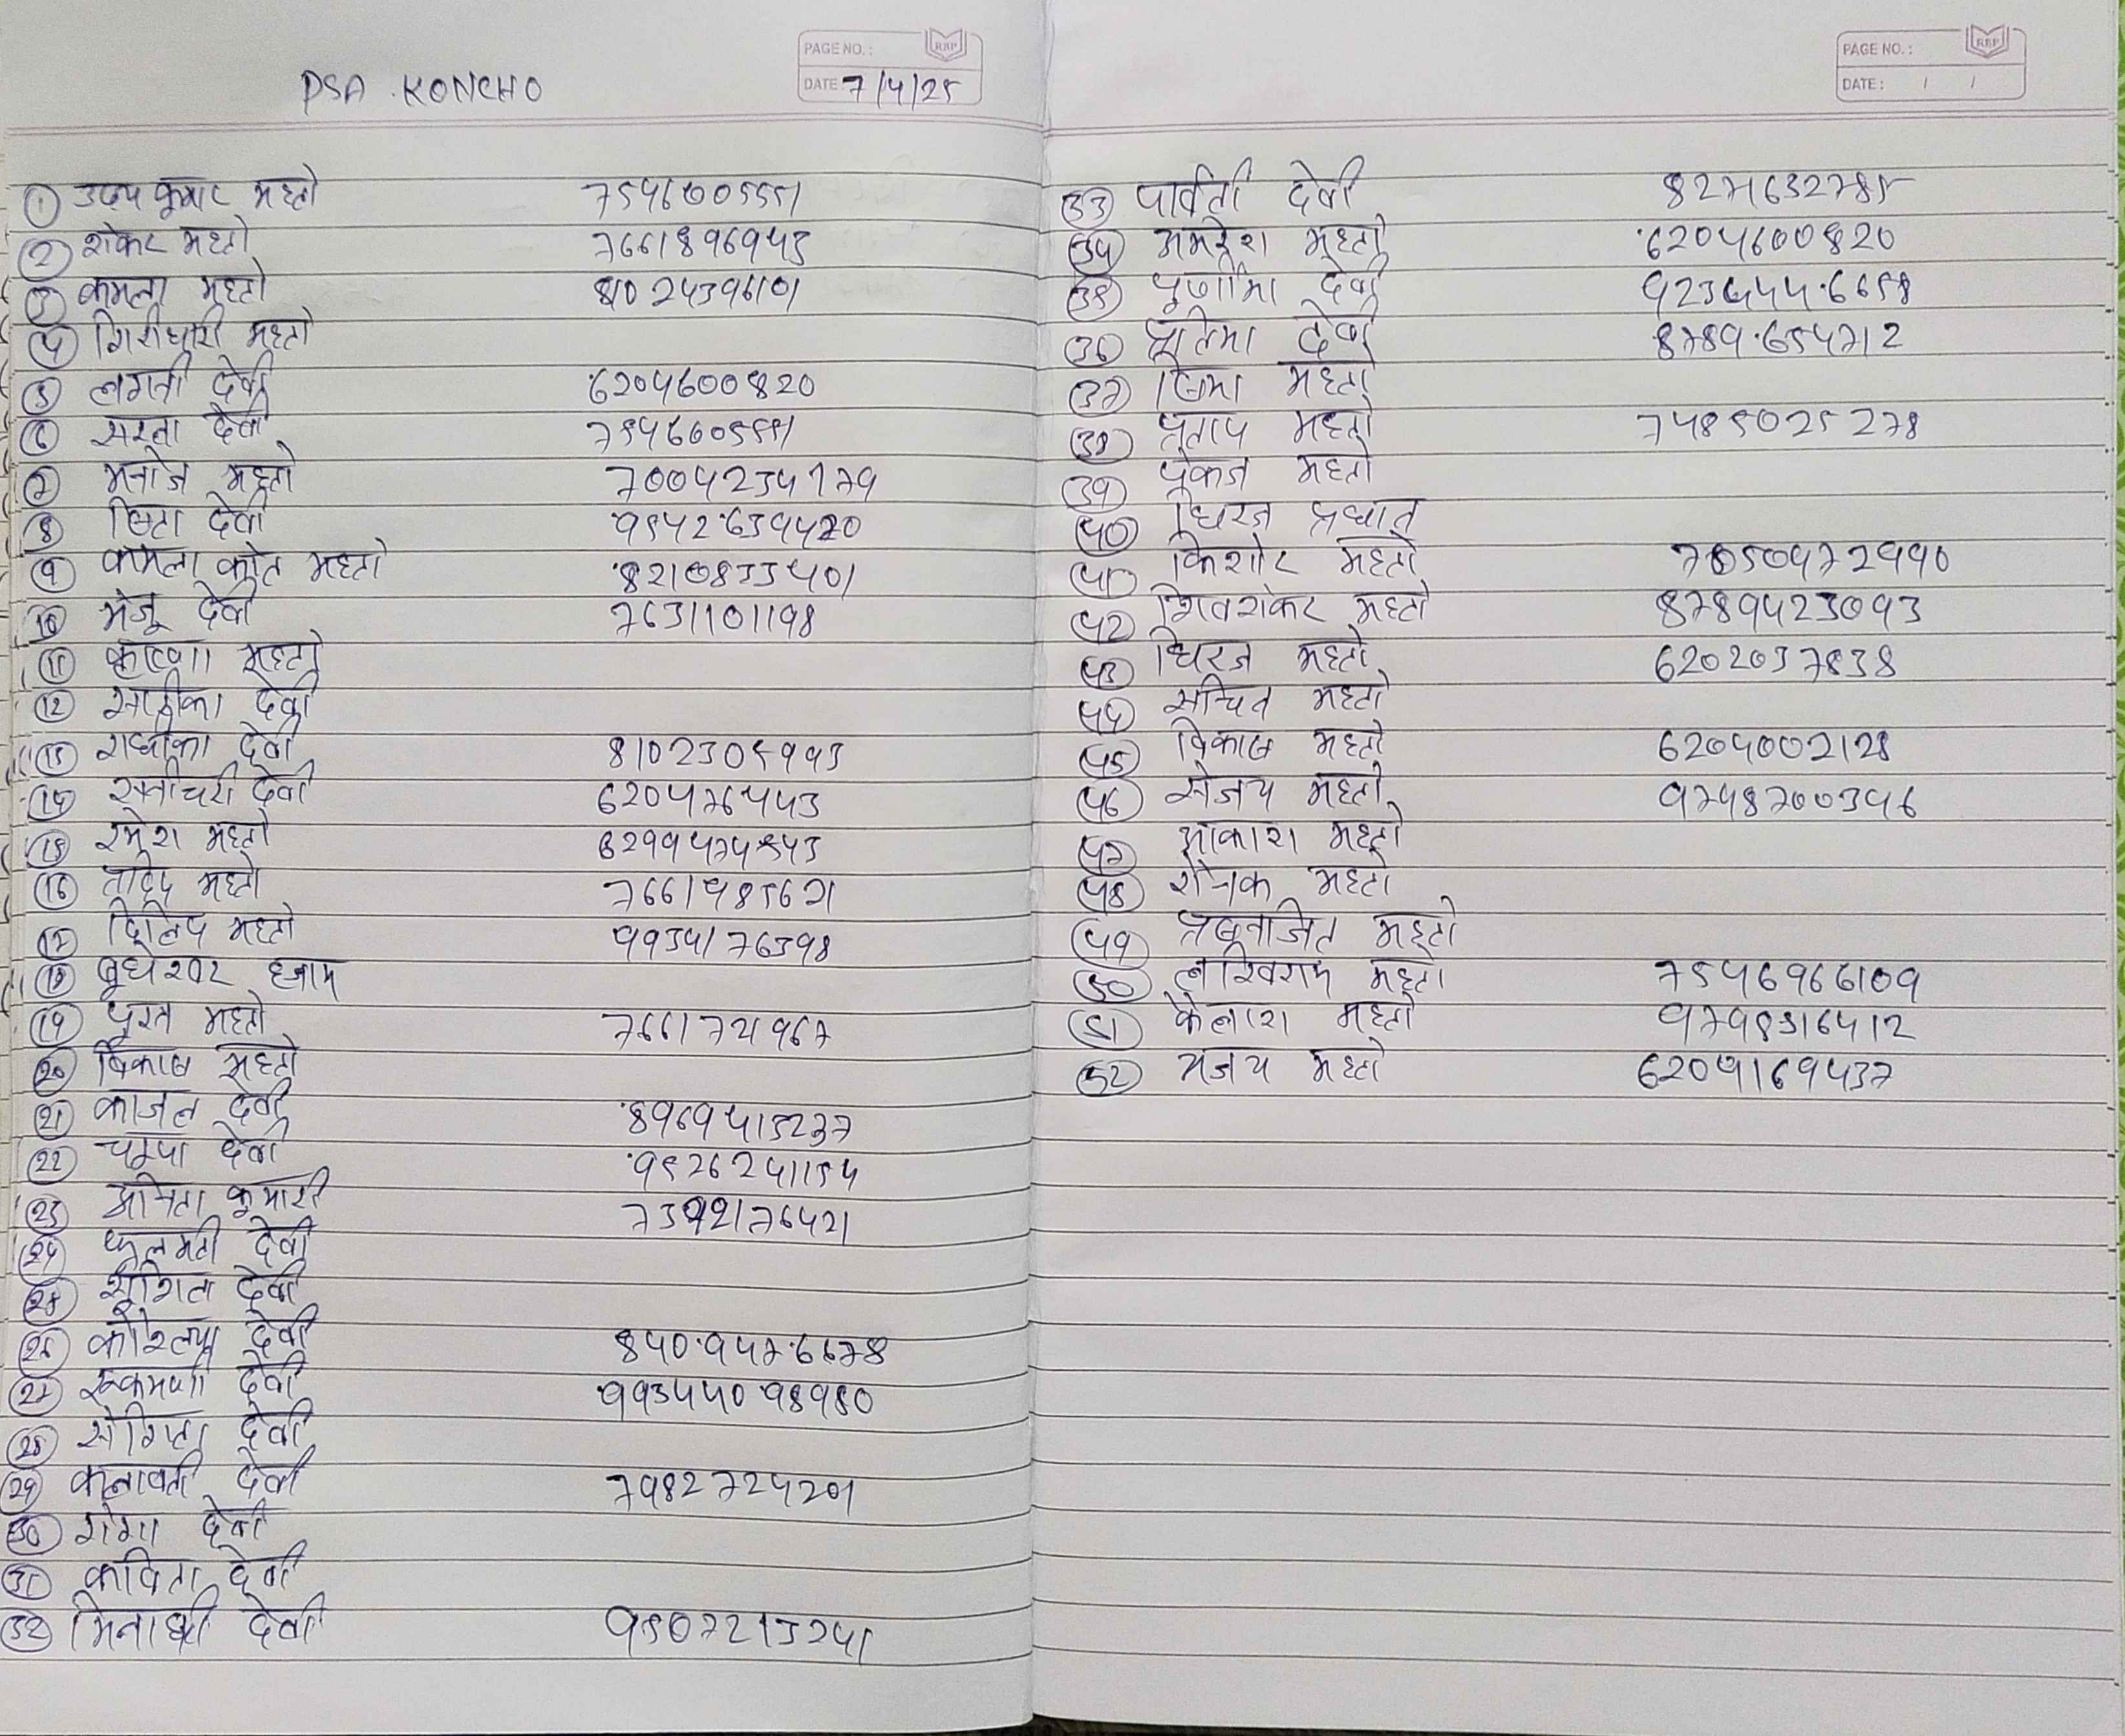 PAGE NO.: RBP
DSA. KONCHO DATE: 7/4/25
① उदय कुमार महतो 7546005551
② शंकर महतो 7661896943
③ कमला महतो 8102439610
④ गिरीधारी महतो
⑤ लगनी देवी 6204600820
⑥ सरला देवी 7546605551
⑦ मनोज महतो 7004234179
⑧ देवी 9542639420
⑨ कमला कांत महतो 8210833401
⑩ मंजू देवी 7631101198
⑪ महतो
⑫ देवी
⑬ राधीका देवी 8102305993
⑭ सनीचरी देवी 620476443
⑮ रमेश महतो 6299474543
⑯ महतो 7661985621
⑰ दिलिप महतो 9934176398
⑱ बुधेश्वर हजाम
⑲ पुरन महतो 766172967
⑳ विकास महतो
㉑ काजल देवी 8969415237
㉒ चम्पा देवी 9526241154
㉓ अनिता कुमारी 7392176421
㉔ फुलमनी देवी
㉕ देवी
㉖ देवी 840.947.6678
㉗ रूकमणी देवी 99344098980
㉘ संगिता देवी
㉙ कलावती देवी 7982724201
㉚ गंगा देवी
㉛ कविता देवी
㉜ मिनाक्षी देवी 9507221324
PAGE NO.: RBP
DATE: / /
㉝ पार्वती देवी 8271632785
㉞ अमरेश महतो 6204600820
㉟ पुर्णीमा देवी 923444.6658
㊱ देवी 8789.654712
㊲ महतो
㊳ प्रताप महतो 7485025278
㊴ पंकज महतो
㊵ धिरज प्रधान
㊶ किशोर महतो 7050972990
㊷ शिवशंकर महतो 8789423093
㊸ धिरज महतो 6202037838
㊹ सचित महतो
㊺ विकास महतो 6204002128
㊻ संजय महतो 9748700396
㊼ आकाश महतो
㊽ रौनक महतो
㊾ महतो
㊿ लखिराम महतो 7546966109
51 कैलाश महतो 9798316412
52 अजय महतो 6204169437